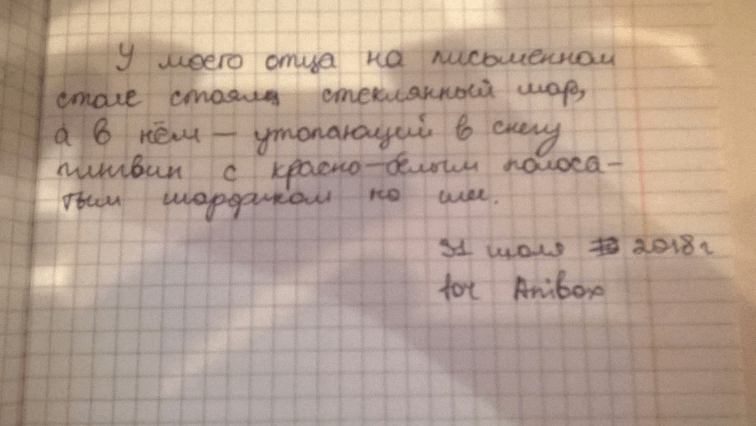 У моего отца на письменном
столе стоял стеклянный шар,
а в нём — утопающий в снегу
пингвин с красно-белым полоса-
тым шарфиком на шее.
31 июля 2018 г
for Anibox